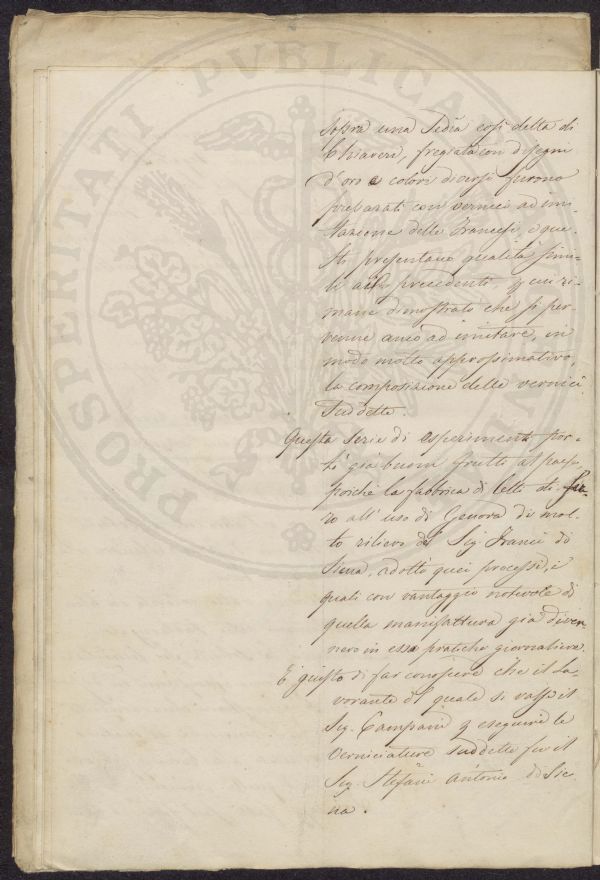 PROSPERITATI PVBLICAE
sopra una Sedia così detta di
Chiaveri, fregiata con disegni
d'oro e colori diversi furono
preparati con vernici ad imi-
tazione delle Francesi, e que-
sti presentano qualità simi-
li ai precedenti, q cui ri-
mane dimostrato che si per-
venne anco ad imitare, in
modo molto approssimativo,
la composizione delle vernici
suddette.
Questa serie di esperimenti por-
tò già buoni frutti al paese
poichè la fabbrica di letti di fer-
ro all'uso di Genova di mol-
to rilievo del Sig. Franci di
Siena, adottò quei processi, i
quali con vantaggio notevole di
quella manifattura già diven-
nero in essa pratiche giornaliere.
E' giusto di far conoscere che il la-
vorante del quale si valse il
Sig. Campani q eseguire le
verniciature suddette fu il
Sig. Stefani Antonio di Sie-
na.